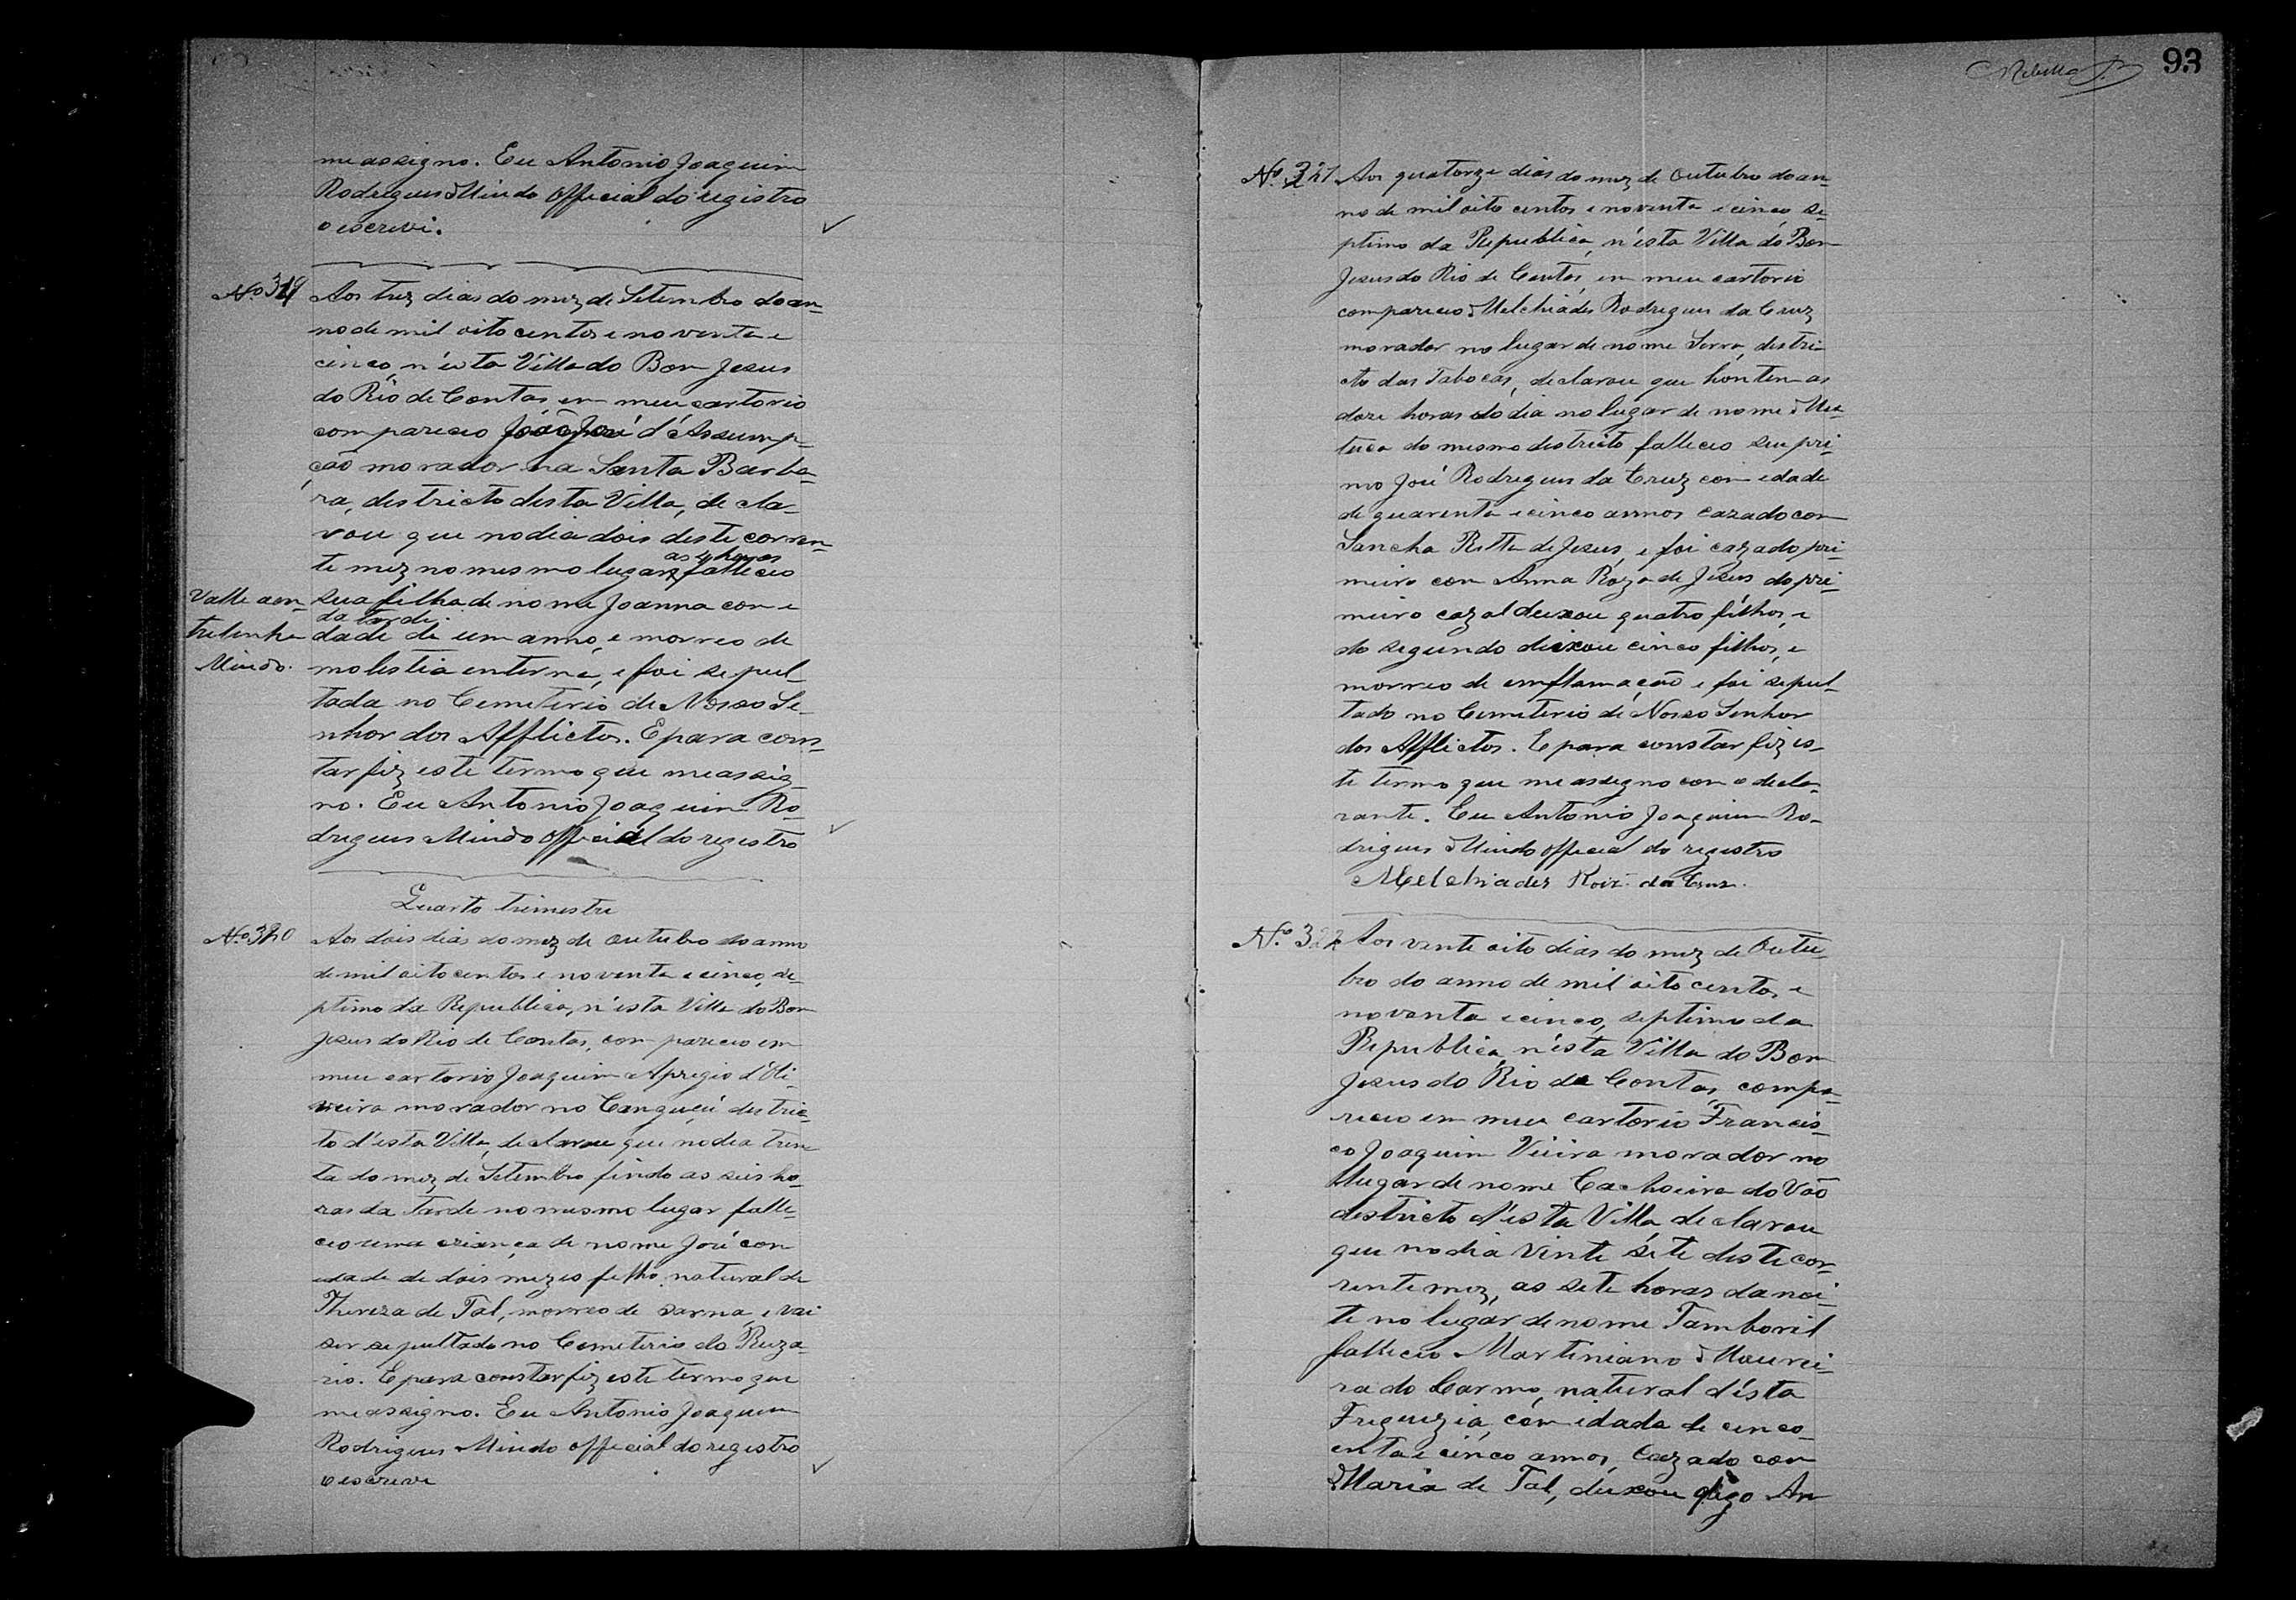 me assigno. Eu Antonio Joaquim
Rodrigues Mindo Official do registro
o escrevi.
Nº 319
Aos trez dias do mez de Setembro do an-
no de mil oito centos e noventa e
cinco, n'esta Villa do Bom Jesus
do Rio de Contas em meu cartorio
compareceo João José d'Assump-
ção morador na Santa Barba-
ra, destricto desta Villa, decla-
rou que no dia dois deste corren-
as 4 horas
te mez no mesmo lugar falleceo
Valle a en-
sua filha de nome Joanna com e
da tarde.
trelinha
dade de um anno, e morreo de
Mindo.
molestia enterna, e foi sepul-
tada no Cemeterio de Nosso Se-
nhor dos Afflictos. E para cons-
tar fiz este termo que me assig
no. Eu Antonio Joaquim Ro-
drigues Mindo official do registro
Quarto trimestre
Nº 320
Aos dois dias do mez de Outubro do anno
de mil oito centos e noventa e cinco, se-
ptimo da Republica, n'esta Villa do Bom
Jesus do Rio de Contas, compareceo em
meu cartorio Joaquim Aprigio d'Oli-
veira morador no Canguçú destric-
to d'esta Villa, declarou que no dia trin
ta do mez de Setembro findo as seis ho-
ras da Tarde no mesmo lugar falle-
ceo uma criança de nome José com
edade de dois mezes filho natural de
Thereza de Tal, morreo de sarna, e vai
ser sepultado no Cemeterio do Ruza-
rio. E para constar fiz este termo que
me assigno. Eu Antonio Joaquim
Rodrigues Mindo official do registro
o escrevi
93
Nº 321
Aos quatorze dias do mez de Outubro do an-
no de mil oito centos e noventa e cinco se-
ptimo da Republica, n'esta Villa do Bom
Jesus do Rio de Contas, em meu cartorio
compareceo Melchiades Rodrigues da Cruz
morador no lugar de nome Serra, destri-
cto das Tabocas, declarou que hontem as
doze horas do dia no lugar de nome Mu-
tuca do mesmo destricto falleceo seu pri-
mo José Rodrigues da Cruz com edade
de quarenta e cinco annos cazado com
Sancha Ritta de Jesus, e foi cazado pri-
meiro com Anna Roza de Jesus do pri-
meiro cazal deixou quatro filhos, e
do segundo deixou cinco filhos, e
morreo de emflamação e foi sepul-
tado no Cemeterio de Nosso Senhor
dos Afflictos. E para constar fiz es-
te termo que me assegno com o decla-
rante. Eu Antonio Joaquim Ro-
drigues Mindo official do registro
Melchiades Roiz da Cruz.
Nº 322
Aos vente oito dias do mez de Outu-
bro do anno de mil oito centos e
noventa e cinco, septimo da
Republica, n'ésta Villa do Bom
Jesus do Rio de Contas, compa-
receo em meu cartorio Francis-
co Joaquim Vieira morador no
lugar de nome Cachoeira do Vaõ
destricto d'esta Villa, declarou
que no dia Vinte séte deste cor-
rente mez, as sete horas da noi-
te no lugar de nome Tamboril
falleceo Martiniano Mourei-
ra do Carmo, natural d'ésta
Freguezia, com idada de cinco-
enta e cinco annos, Cazado com
Maria de Tal, deixou digo An